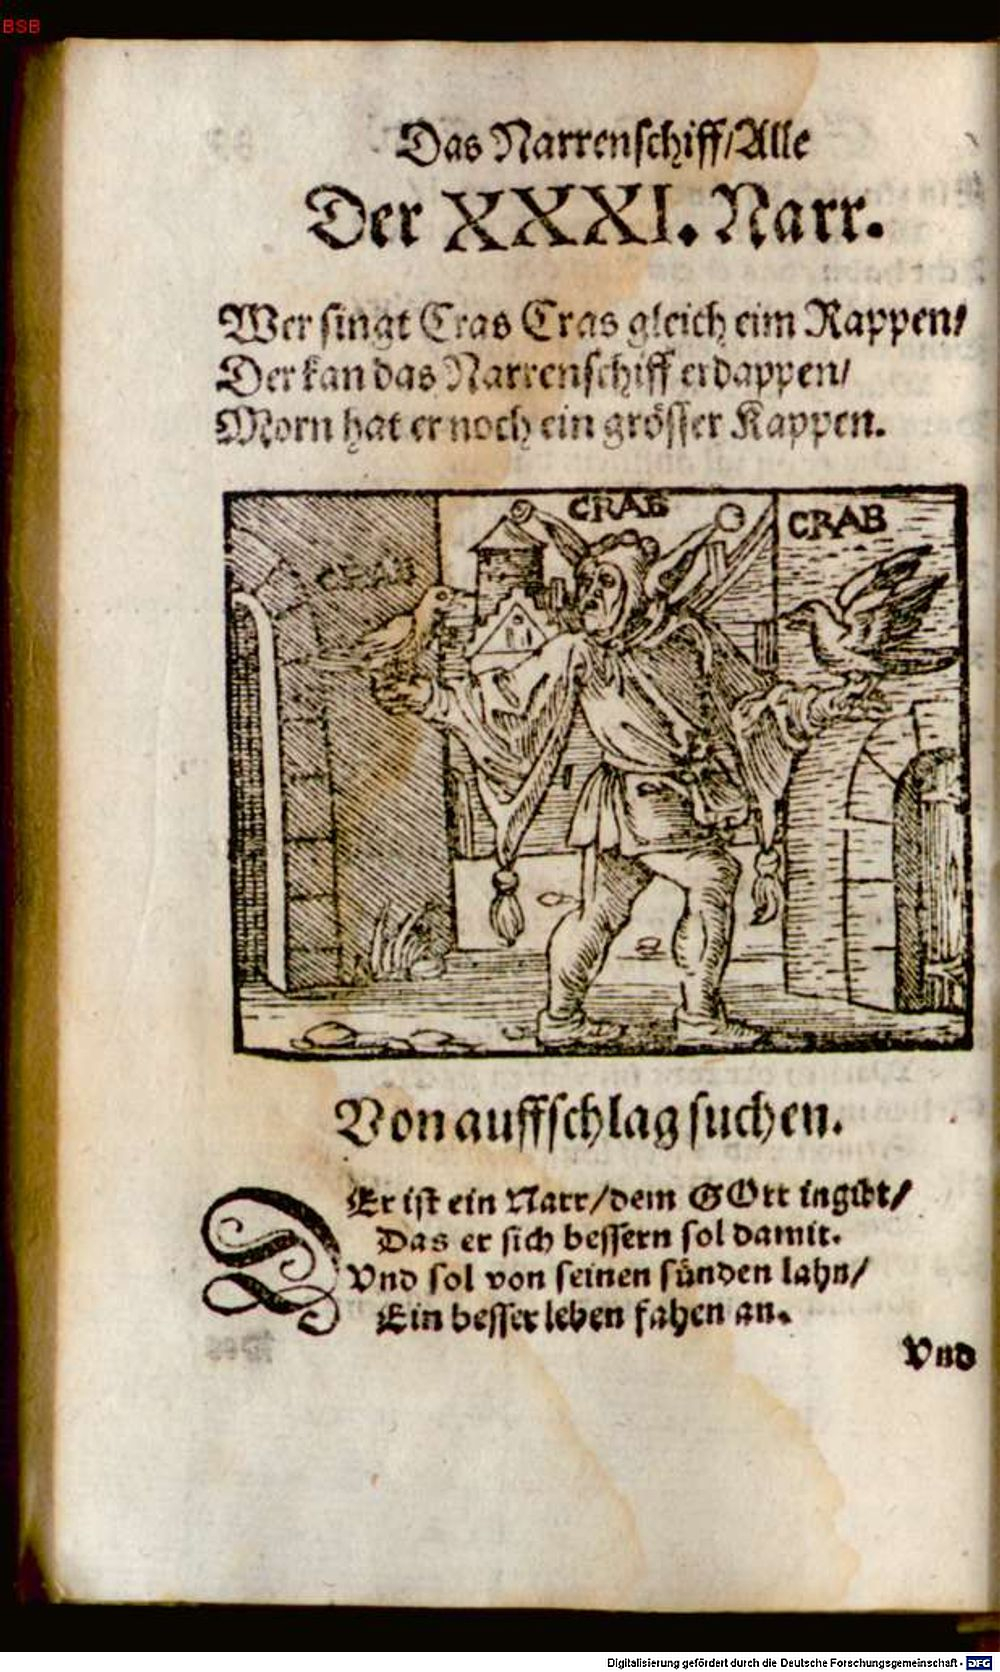 BSB
Das Narrenschiff/Alle
Der XXXI. Narr.
Wer singt Cras Cras gleich eim Rappen/
Der kan das Narrenschiff erdappen/
Morn hat er noch ein grösser Kappen.
CRAS
CRAS
CRAS
Von auffschlag suchen.
DEr ist ein Narr/dem GOtt ingibt/
Das er sich bessern sol damit.
Vnd sol von seinen sünden lahn/
Ein besser leben fahen an.
Vnd
Digitalisierung gefördert durch die Deutsche Forschungsgemeinschaft - DFG